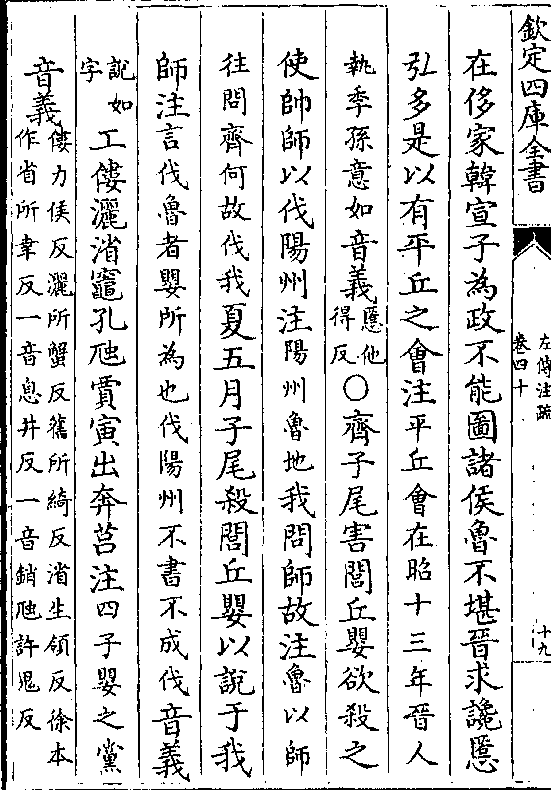 欽定四庫全書
左傳注疏
卷四十
十九
在侈家韓宣子為政不能圖諸侯魯不堪晉求讒慝
弘多是以有平丘之會注平丘會在昭十三年晉人
執季孫意如音義慝他得反〇齊子尾害閭丘嬰欲殺之
使帥師以伐陽州注陽州魯地我問師故注魯以師
往問齊何故伐我夏五月子尾殺閭丘嬰以說于我
師注言伐魯者嬰所為也伐陽州不書不成伐音義
說如字工僂灑渻竈孔虺賈寅出奔莒注四子嬰之黨
音義僂力侯反灑所蟹反舊所綺反渻生領反徐本
作省所幸反一音息井反一音銷虺許鬼反